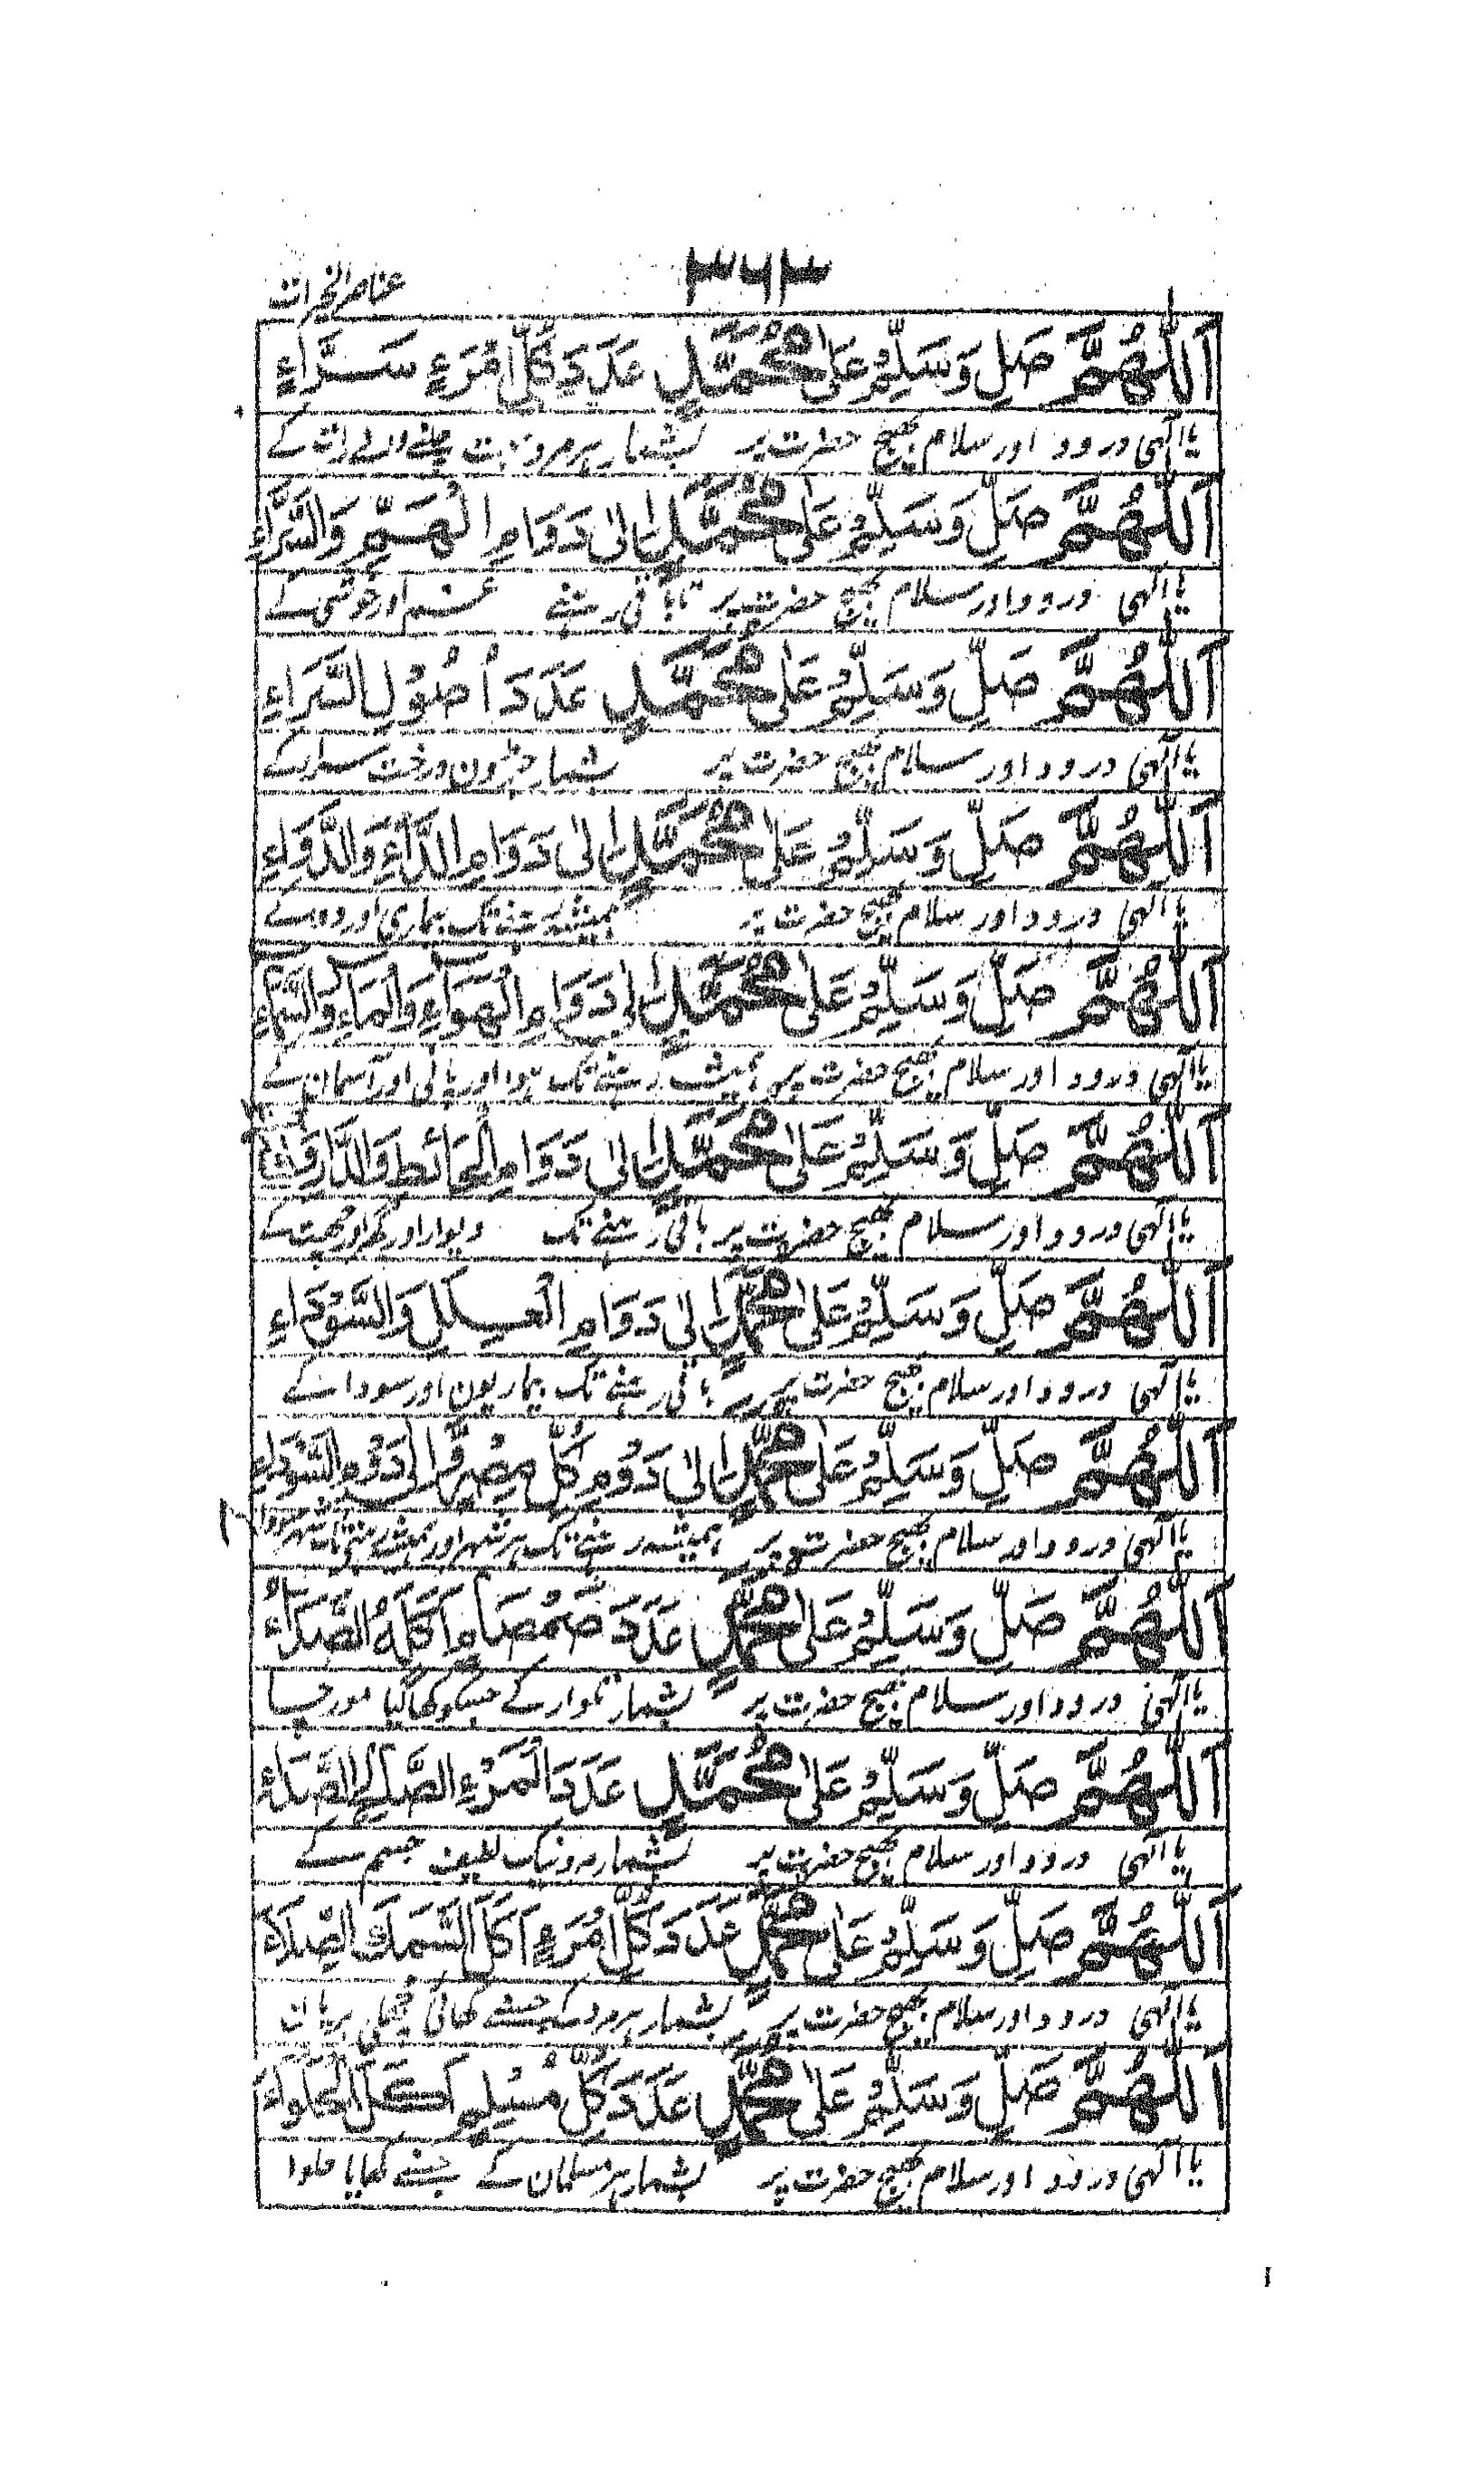 ۳۶۳
عناصر الخیرات
اَللّٰهُمَّ صَلِّ وَسَلِّمْ عَلٰى مُحَمَّدٍ عَدَدَ كُلِّ امْرَءٍ سَرَّاءٍ
یا الٰہی درود اور سلام بھیج حضرت پر بشمار ہر مرد بہت چلنے والے رات کے
اَللّٰهُمَّ صَلِّ وَسَلِّمْ عَلٰى مُحَمَّدٍ اِلٰى دَوَامِ الْهَمِّ وَالسَّرَّاءِ
یا الٰہی درود اور سلام بھیج حضرت پر تا باقی رہنے غم اور خوشی کے
اَللّٰهُمَّ صَلِّ وَسَلِّمْ عَلٰى مُحَمَّدٍ عَدَدَ اُصُوْلِ السَّرَاءِ
یا الٰہی درود اور سلام بھیج حضرت پر شمار جڑون درخت سرا کے
اَللّٰهُمَّ صَلِّ وَسَلِّمْ عَلٰى مُحَمَّدٍ اِلٰى دَوَامِ الدَّاءِ وَالدَّوَاءِ
یا الٰہی درود اور سلام بھیج حضرت پر ہمیشہ رہنے تک بیماری اور دوا کے
اَللّٰهُمَّ صَلِّ وَسَلِّمْ عَلٰى مُحَمَّدٍ اِلٰى دَوَامِ الْهَوَاءِ وَالْمَاءِ وَالسَّمَاءِ
یا الٰہی درود اور سلام بھیج حضرت پر ہمیشہ رہنے تک ہوا اور پانی اور آسمان کے
اَللّٰهُمَّ صَلِّ وَسَلِّمْ عَلٰى مُحَمَّدٍ اِلٰى دَوَامِ الْحَائِطِ وَالدَّارِ
یا الٰہی درود اور سلام بھیج حضرت پر باقی رہنے تک دیوار اور گھر اور چھت کے
اَللّٰهُمَّ صَلِّ وَسَلِّمْ عَلٰى مُحَمَّدٍ اِلٰى دَوَامِ الْعِلَلِ وَالسَّوْدَاءِ
یا الٰہی درود اور سلام بھیج حضرت پر باقی رہنے تک بیماریون اور سودا کے
اَللّٰهُمَّ صَلِّ وَسَلِّمْ عَلٰى مُحَمَّدٍ اِلٰى دَوَمِ كُلِّ مِصْرٍ وَّاِلٰى دَوَمِ السَّوْدَاءِ
یا الٰہی درود اور سلام بھیج حضرت پر ہمیشہ رہنے تک ہر شہر اور ہمیشہ رہنے
اَللّٰهُمَّ صَلِّ وَسَلِّمْ عَلٰى مُحَمَّدٍ عَدَدَ صَمْصَامٍ اَكَلَهُ الصَّدَاءُ
یا الٰہی درود اور سلام بھیج حضرت پر بشمار تلوار کے جسکو کھا گیا مورچا
اَللّٰهُمَّ صَلِّ وَسَلِّمْ عَلٰى مُحَمَّدٍ عَدَدَ الْمَرْءِ الصَّالِحِ
یا الٰہی درود اور سلام بھیج حضرت پر بشمار مرد نیک لطیف جسم کے
اَللّٰهُمَّ صَلِّ وَسَلِّمْ عَلٰى مُحَمَّدٍ عَدَدَ كُلِّ امْرَءٍ اَكَلَ السَّمَكَ
یا الٰہی درود اور سلام بھیج حضرت پر بشمار ہر مرد کے جسنے کھائی مچھلی بریان
اَللّٰهُمَّ صَلِّ وَسَلِّمْ عَلٰى مُحَمَّدٍ عَدَدَ كُلِّ مُسْلِمٍ اَكَلَ الْحَلْوَاءَ
یا الٰہی درود اور سلام بھیج حضرت پر بشمار ہر مسلمان کے جسنے کھایا حلوا